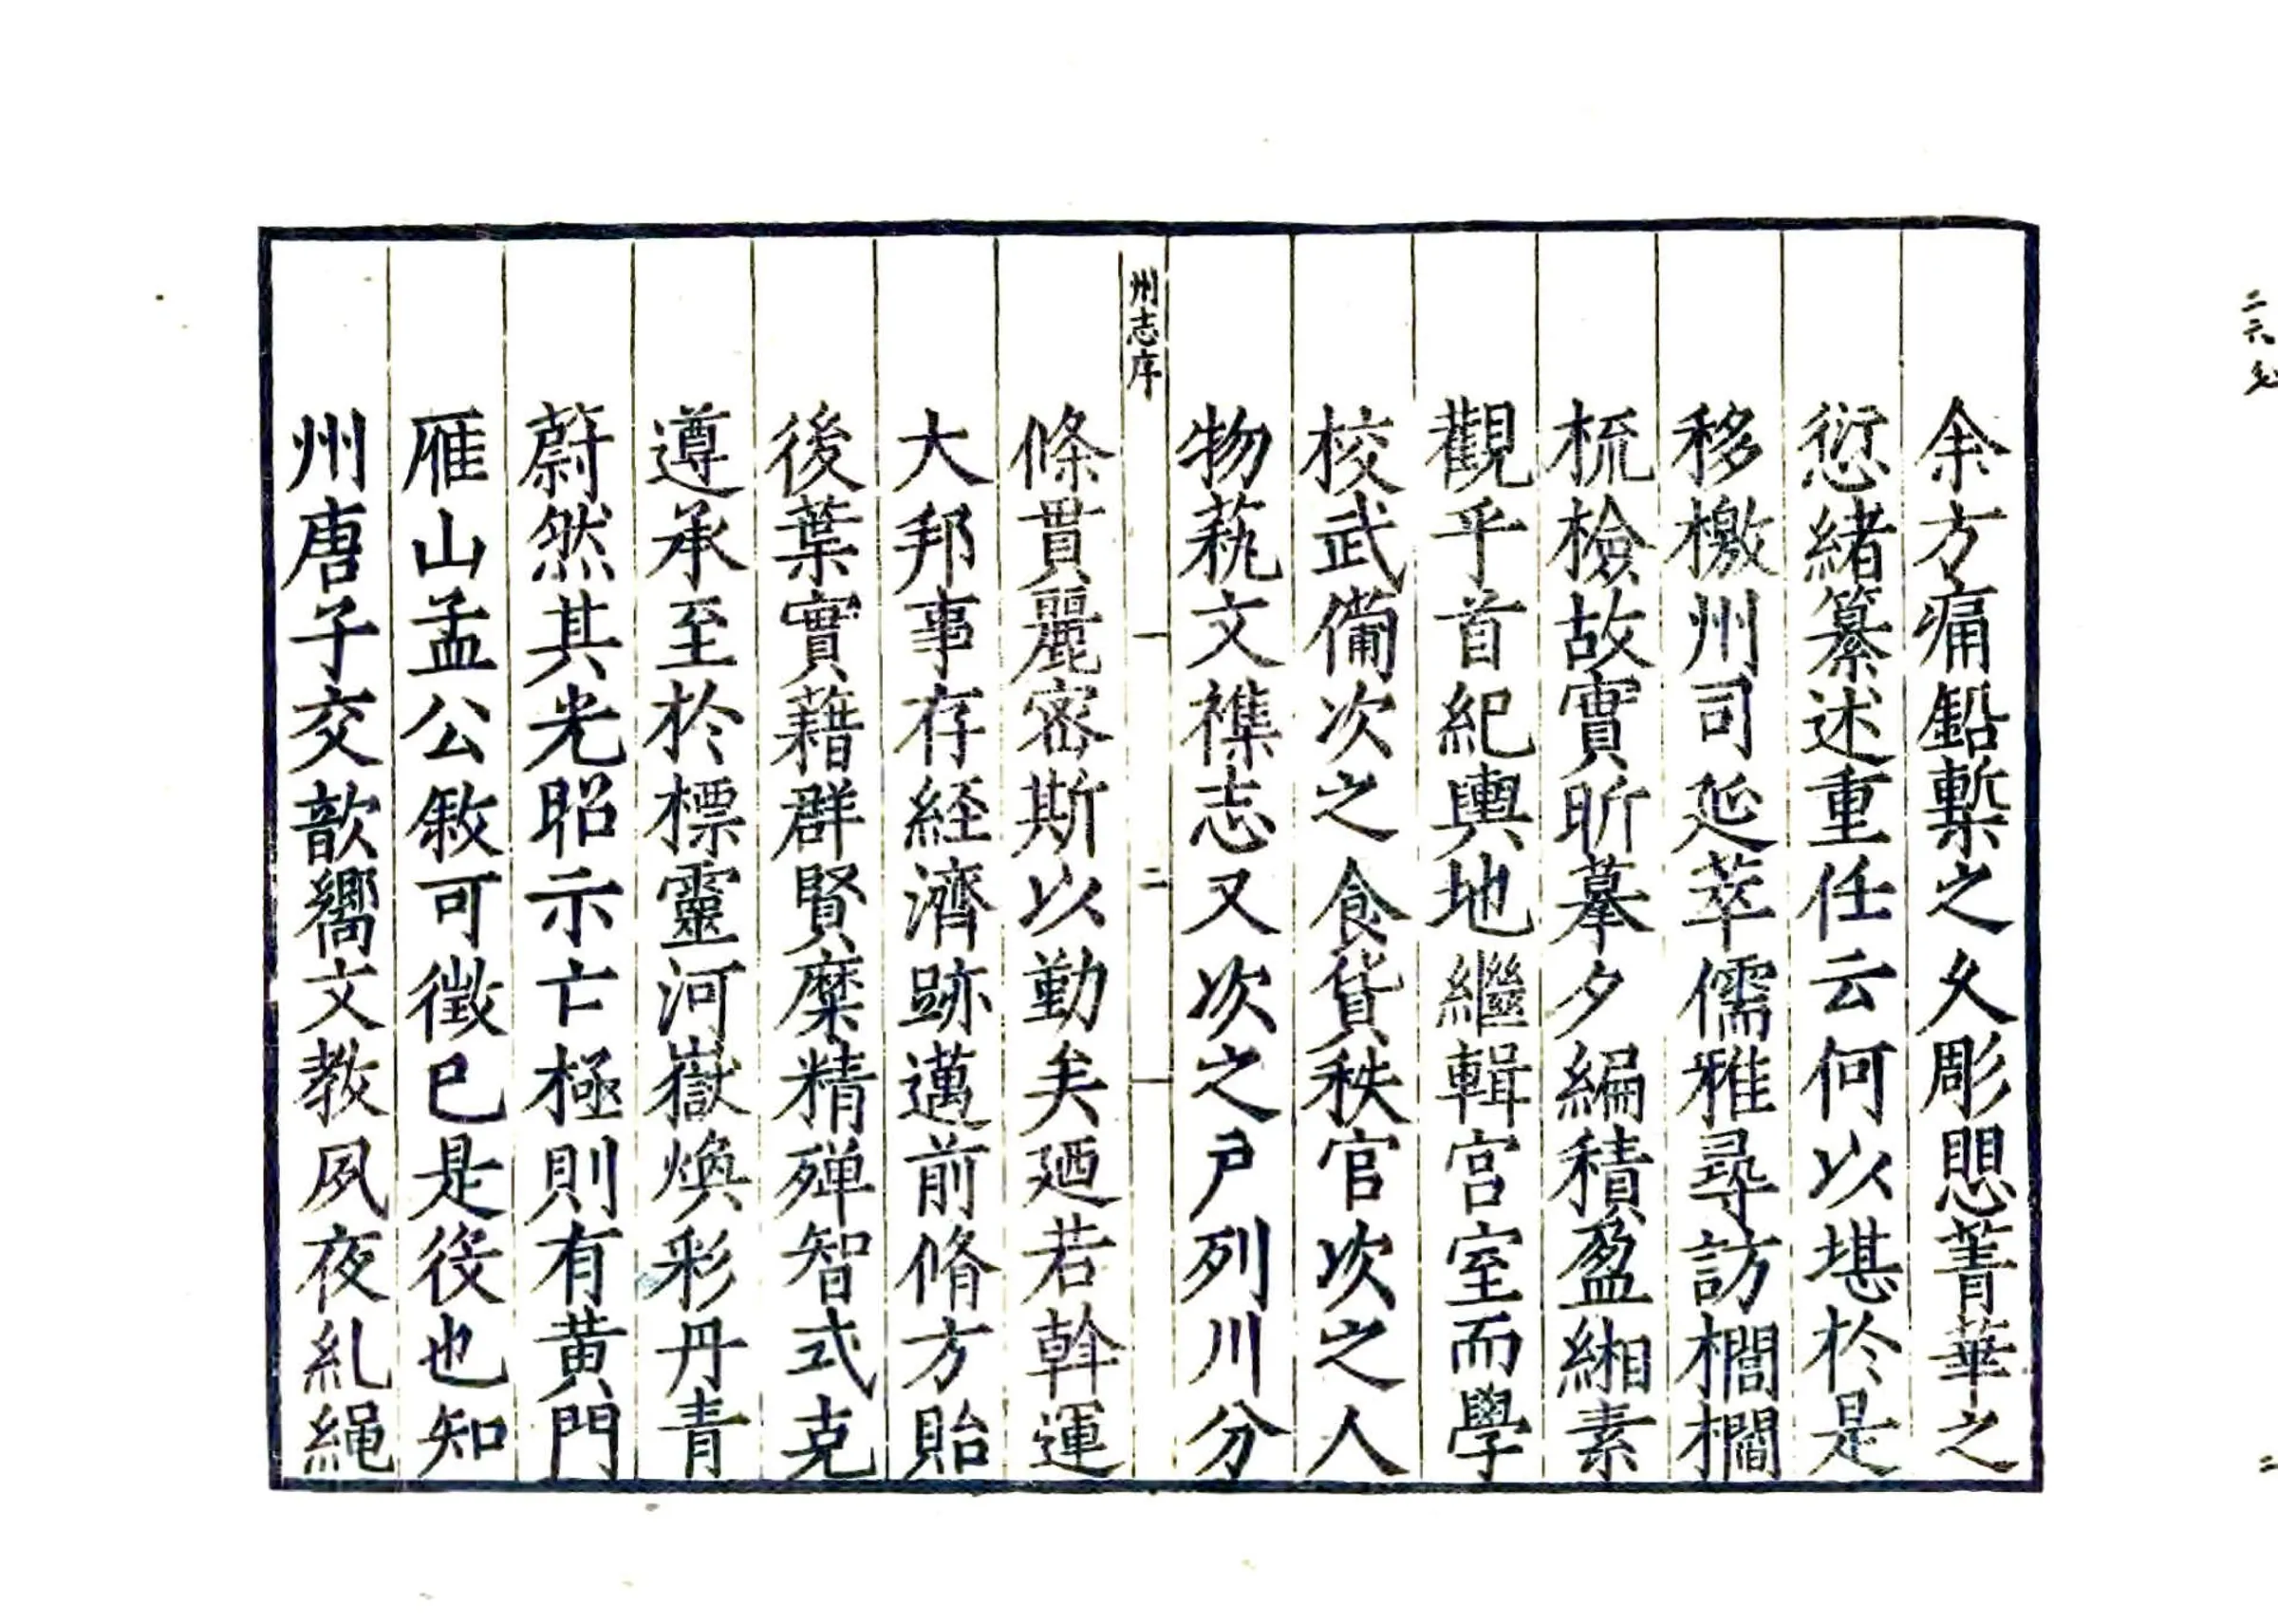 余方痛鉛槧之久彫愳菁華之
愆緒纂述重任云何以堪於是
移檄州司延萃儒雅尋訪櫚櫚
梳檢故實昕摹夕編積盈緗素
觀乎首紀輿地繼輯宫室而學
校武備次之食貨秩官次之人
物蓺文襍志又次之戶列川分
州志序
二
條貫麗密斯以勤矣廼若斡運
大邦事存経濟跡邁前脩方貽
後葉實藉群賢糜精殫智式克
遵承至於標靈河嶽煥彩丹青
蔚然其光昭示亡極則有黄門
雁山孟公敘可徵已是役也知
州唐子交歆嚮文教夙夜糺繩